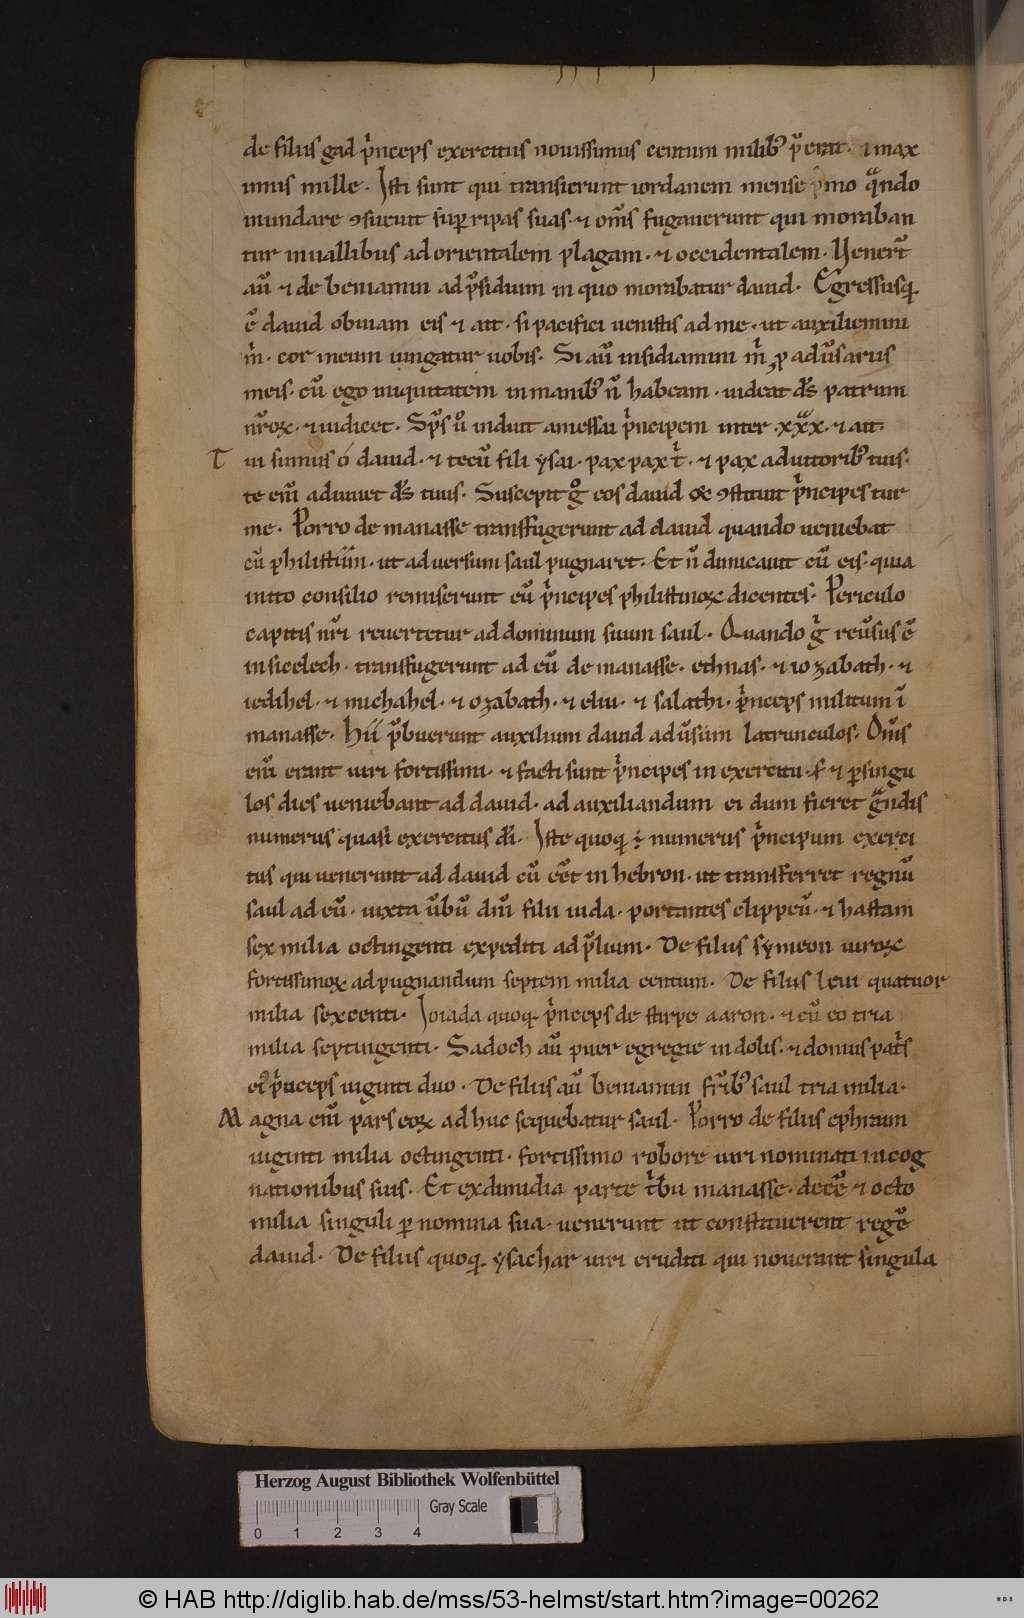 de filiis gad p̾nceps exercitus nouissimus centum milib; p̾erat. ⁊ max
imus mille. Isti sunt qui transierunt iordanem mense p̾mo qᷓndo
inundare ꝯsueuit suꝑ ripas suas. ⁊ om̅s fugauerunt qui moraban
tur inuallibus ad orientalem plagam. ⁊ occidentalem. Venert̅
au̅ ⁊ de beniamin ad p̅sidium in quo morabatur dauid. Egressusq;
e̅ dauid obuiam eis ⁊ ait. si pacifici uenistis ad me. ut auxiliemini
m̾. cor meum iungatur uobis. Si au̅ insidiamini m̾ ꝓ adu̅sariis
meis. cu̅ ego iniquitatem in manib; n̅ habeam. uideat ds̅ patrum
nr̅oꝝ. ⁊ iudicet. Sp̅s ů induit amessai p̾ncipem inter .xxx. ⁊ ait.
T ui sumus o dauid. ⁊ tecu̅ fili ysai. pax pax t̾. ⁊ pax adiutorib; tuis.
te eni̅ adiuuet ds̅ tuus. Suscepit g̊ eos dauid & ꝯstituit p̾ncipes tur
me. Porro de manasse transfugerunt ad dauid quando ueniebat
cu̅ philistiim. ut aduersum saul pugnaret. Et n̅ dimicauit cu̅ eis. quia
inito consilio remiserunt eu̅ p̾ncipes philistinoꝝ dicentes. Periculo
capitis nr̅i reuertetur ad dominum suum saul. Quando g̾ reu̅sus e̅
in sicelech. transfugerunt ad eu̅ de manasse. ethnas. ⁊ iozabath. ⁊
iedihel. ⁊ michahel. ⁊ ozabath. ⁊ eliu. ⁊ salathi. p̾nceps militum i̅
manasse. Hii p̅buerunt auxilium dauid adu̅sum latrunculos. Om̅s
eni̅ erant uiri fortissimi. ⁊ facti sunt p̾ncipes in exercitu. s; ⁊ ꝑ singu
los dies ueniebant ad dauid. ad auxiliandum ei dum fieret gᷓndis
numerus quasi exercitus di̅. Iste quoq; ÷ numerus p̾ncipum exerci
tus qui uenerunt ad dauid cu̅ ee̅t in hebron. ut transferret regnu̅
saul ad eu̅. iuxta u̅bu̅ dn̅i filii iuda. portantes clippeu̅. ⁊ hastam
sex milia octingenti expediti ad p̅lium. De filiis symeon uiroꝝ
fortissimoꝝ ad pugnandum septem milia centum. De filiis leui quatuor
milia sexcenti. Ioiada quoq; p̾nceps de stirpe aaron. ⁊ cu̅ eo tria
milia septingenti. Sadoch au̅ puer egregie indolis. ⁊ domus pat̾s
ei; p̾nceps uiginti duo. De filiis au̅ beniamin fr̅ib; saul tria milia.
M agna eni̅ pars eoꝝ adhuc sequebatur saul. Porro de filiis ephraim
uiginti milia octingenti. fortissimo robore uiri nominati in cog
nationibus suis. Et ex dimidia parte t̾bu manasse. dece̅ ⁊ octo
milia singuli ꝑ nomina sua. uenerunt ut constituerent rege̅
dauid. De filiis quoq; ysachar uiri eruditi qui nouerant singula
Herzog August Bibliothek Wolfenbüttel
Gray Scale
0 1 2 3 4
© HAB http://diglib.hab.de/mss/53-helmst/start.htm?image=00262